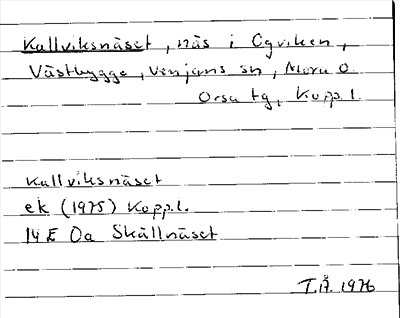 Kallviksnäset, näs i Ogviken,
Västbygge, Venjans sn, Mora o.
Orsa tg, Kopp.l.
Kallviksnäset
ek (1975) Kopp.l.
14E 0a Skällnäset
T.Å. 1976